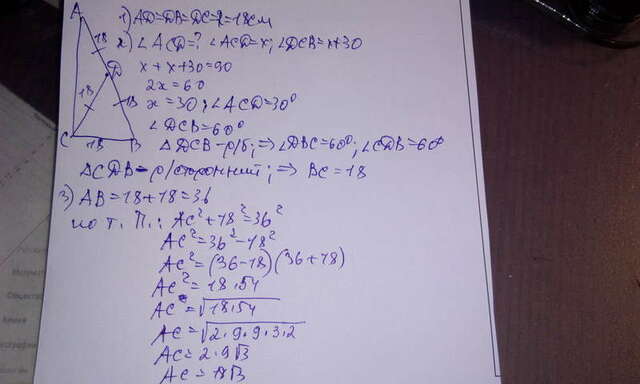 A
18
D
18
18
C
18
B
1) AD=DB=DC=R=18см
2) ∠ACD=? ∠ACD=x; ∠DCB=x+30
x+x+30=90
2x=60
x=30; ∠ACD=30°
∠DCB=60°
△DCB-р/б; ⇒ ∠DBC=60°; ∠CDB=60°
△CDB-р/сторонний; ⇒ BC=18
3) AB=18+18=36
по т. П.: AC²+18²=36²
AC²=36²-18²
AC²=(36-18)(36+18)
AC²=18·54
AC=√18·54
AC=√2·9·9·3·2
AC=2·9√3
AC=18√3